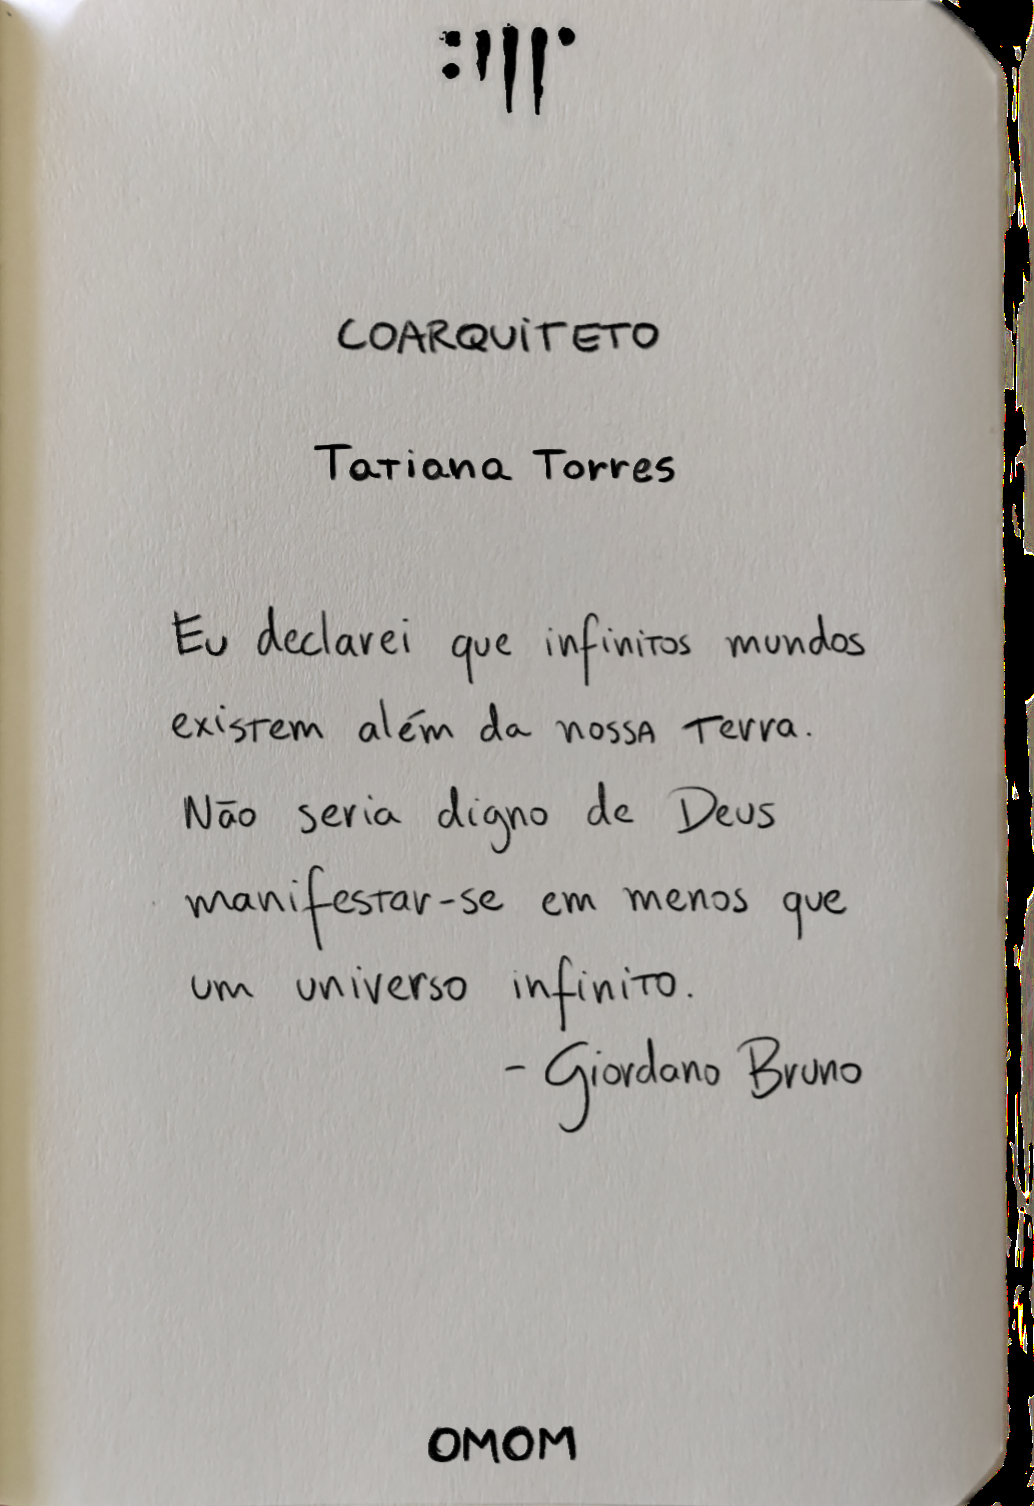 COARQUITETO
Tatiana Torres
Eu declarei que infinitos mundos
existem além da nossa Terra.
Não seria digno de Deus
manifestar-se em menos que
um universo infinito.
- Giordano Bruno
OMOM